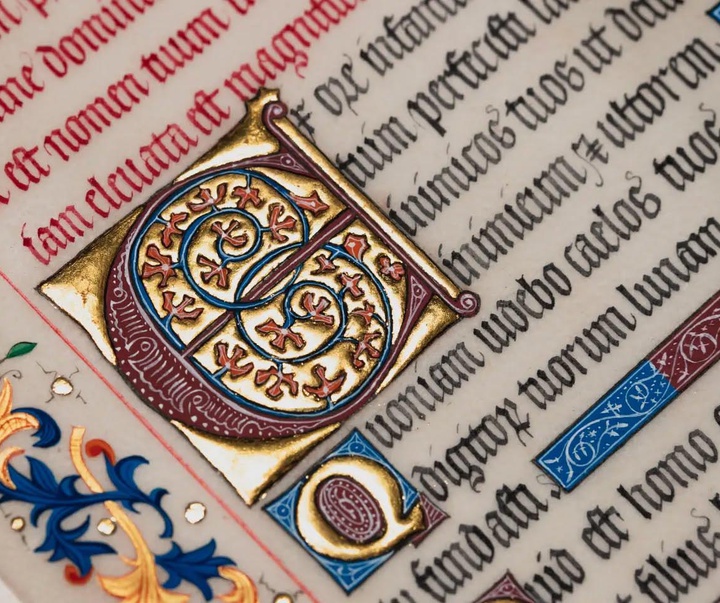 ne domin
est nomen tuum i
iam eleuata est magnifi
Ex oꝛe infan
tium perfecisti la
inimicos tuos ut dest
inimicum ⁊ ultorem
Quoniam uidebo caelos tuos
digitoꝝ tuorum lunam
fundasti.
uid est homo
filius